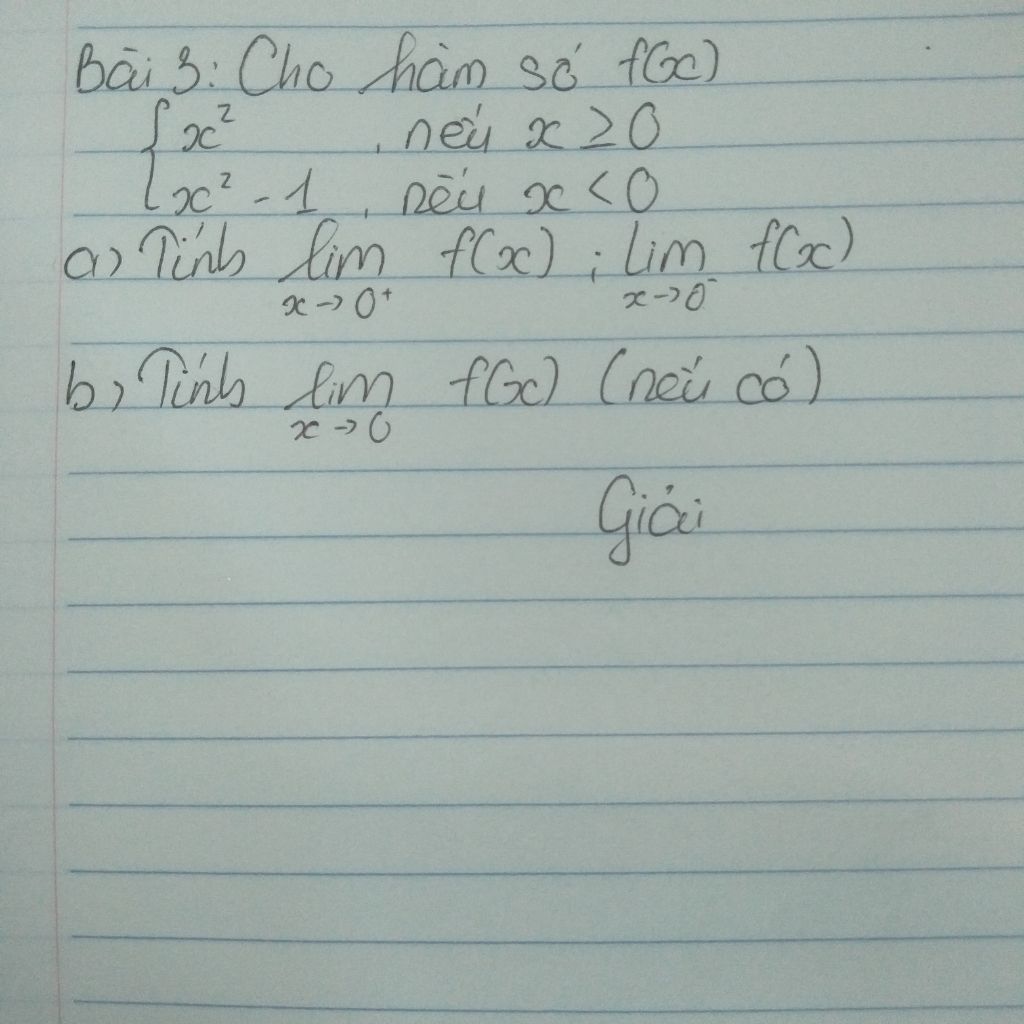 Bài 3: Cho hàm số f(x)
{ x² , nếu x ≥ 0
x² - 1 , nếu x < 0
a) Tính lim f(x) ; lim f(x)
x → 0⁺ x → 0⁻
b) Tính lim f(x) (nếu có)
x → 0
Giải